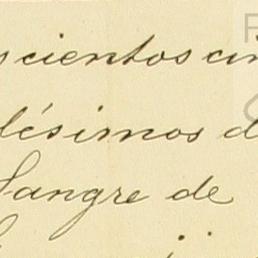 scientos cin
lésimos d
Sangre de